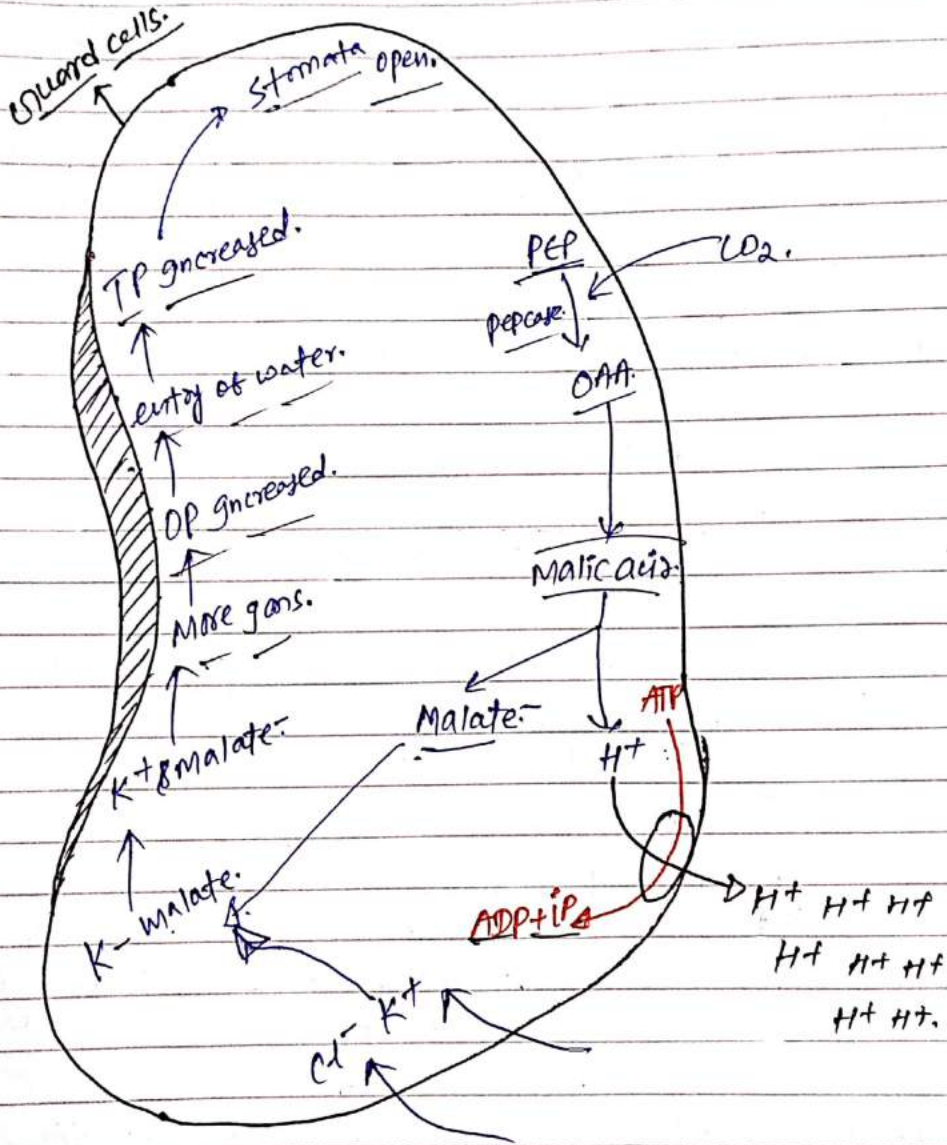 Guard cells.
Stomata open.
TP increased.
entry of water.
OP increased.
More ions.
K+ & malate-
K- malate.
PEP
CO2.
pepcase.
OAA.
Malic acid.
Malate-
H+
ATP
ADP+iP
H+ H+ H+
H+ H+ H+
H+ H+.
K+
Cl-